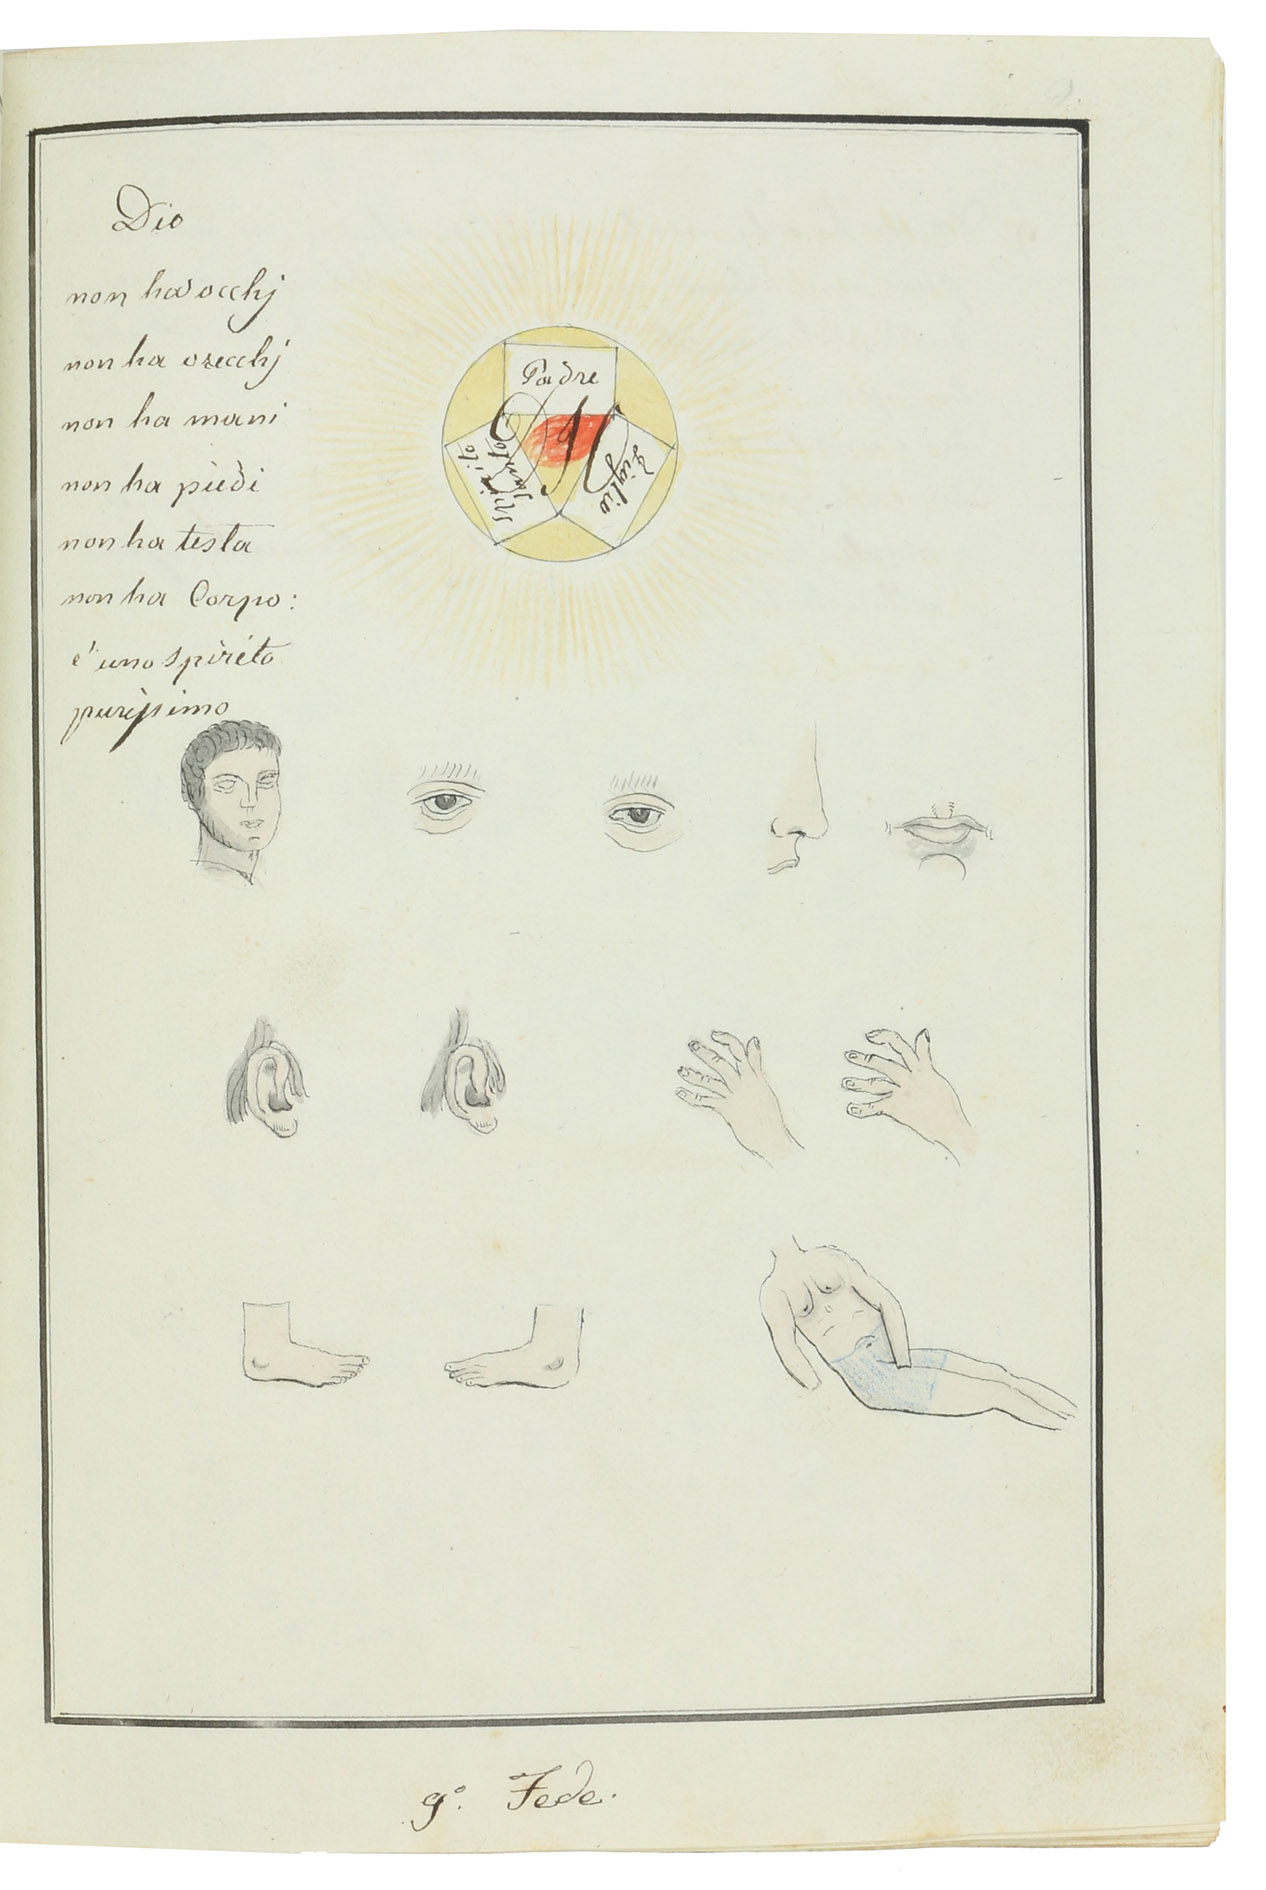 Dio
non ha occhj
non ha orecchj
non ha mani
non ha piedi
non ha testa
non ha Corpo:
e' uno spirito
purissimo
Padre
Figlio
Spirito
Santo
9.° Fede.